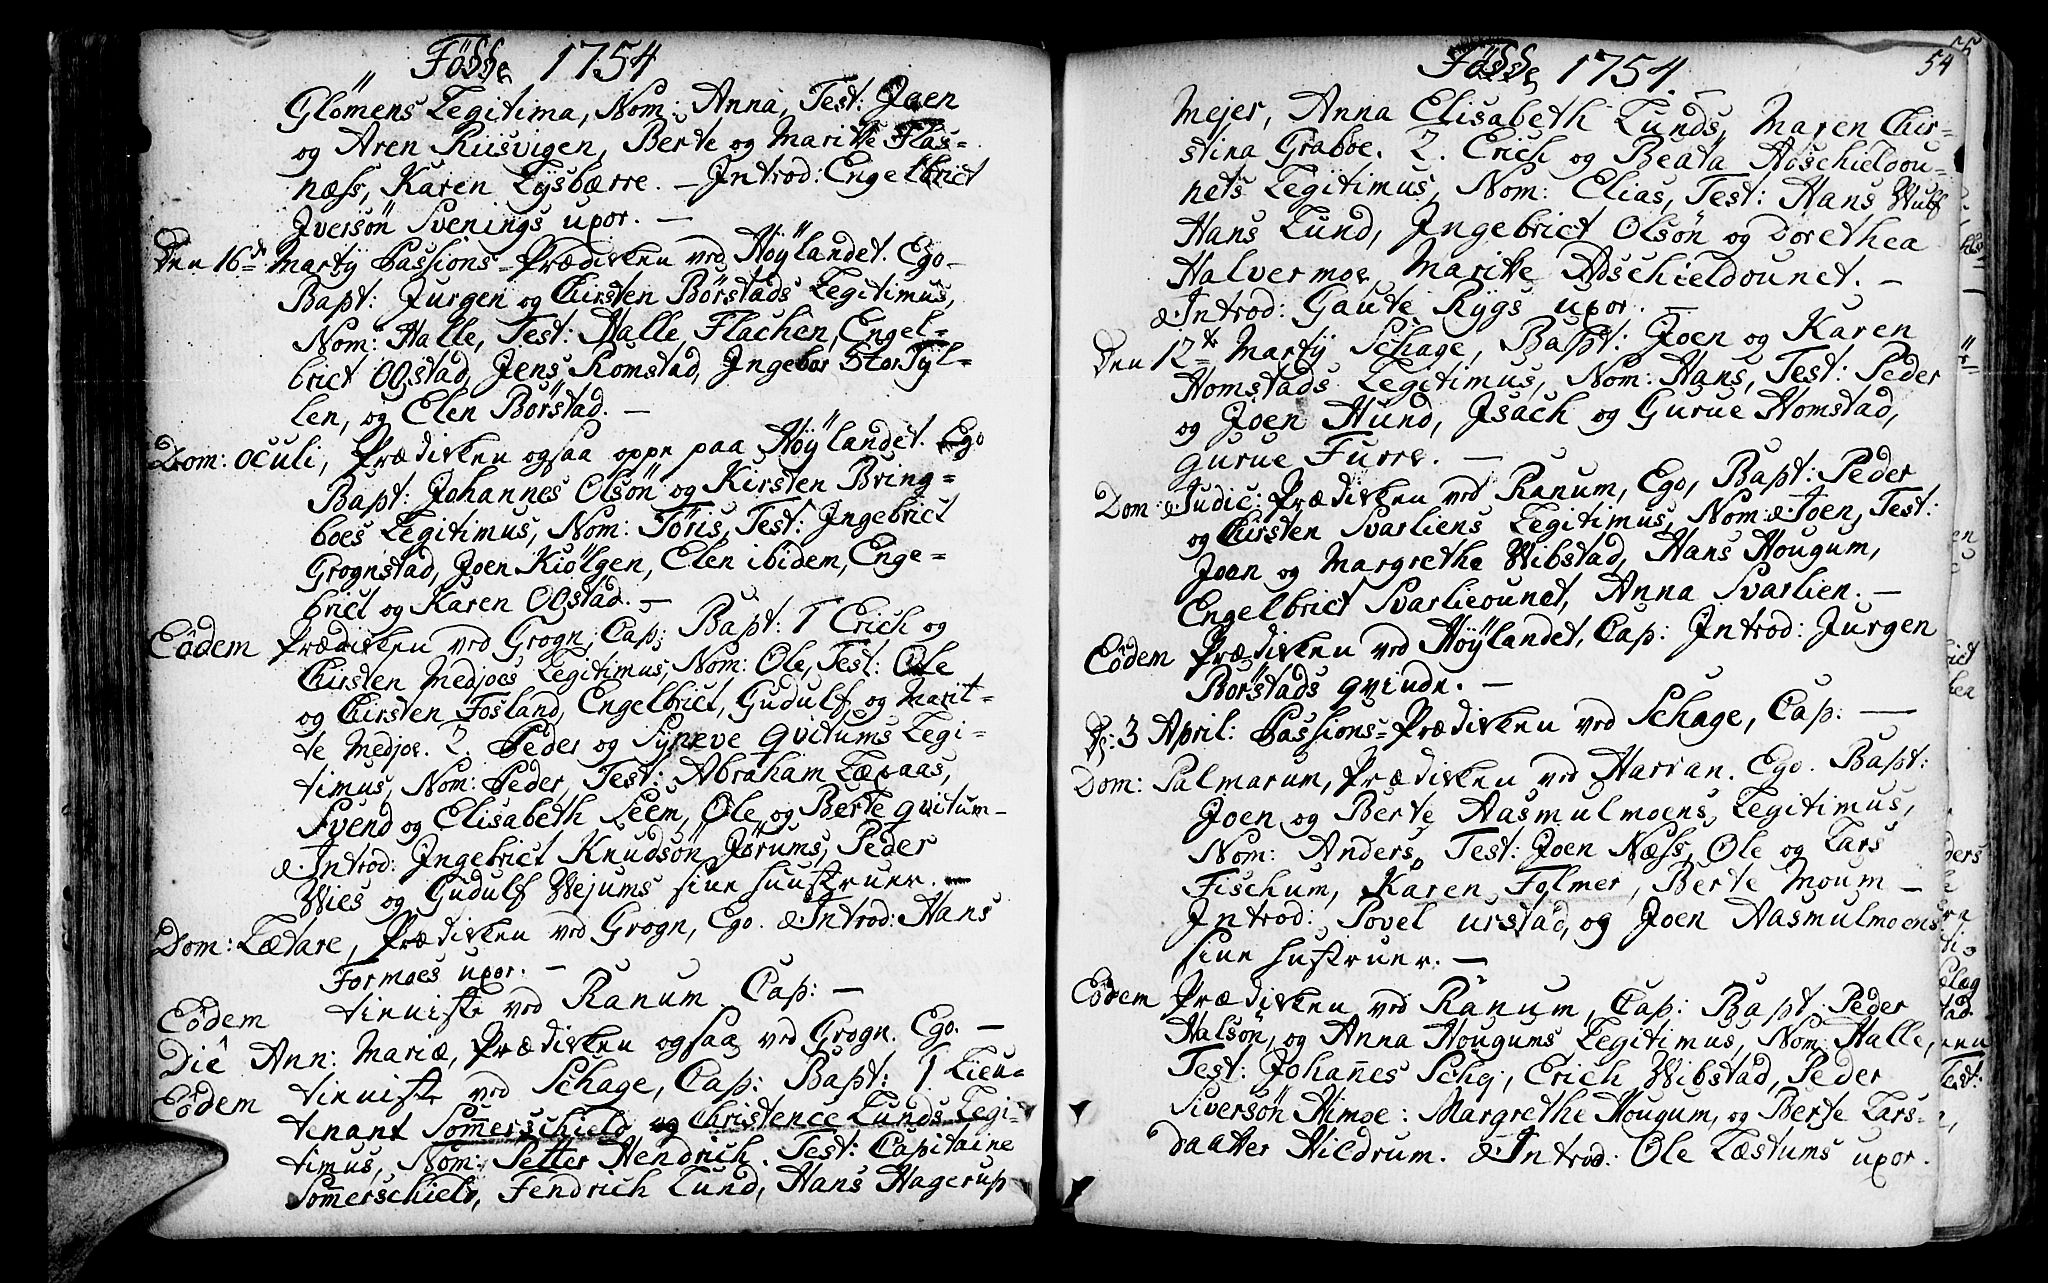 Födde 1754
Glömens Legitima, Nom: Anna, Test: Joen
og Aren Riisvigen, Berte og Maritte Flas-
næss, Karen Lysbærre. — Introd: Engelbrict
Iversön Svenings uxor. —
Den 16de Martÿ Passions-Prædicken ved Höÿlandet. Ego
Bapt: Jurgen og Chirsten Börstads Legitimus,
Nom: Halle, Test: Halle Flachen, Engel-
brict Ogstad, Jens Romstad, Ingebor StorTÿl-
len, og Elen Börstad. —
Dom: Oculi, Prædicken ogsaa oppe paa Höÿlandet. Ego
Bapt: Johannes Olsön og Kirsten Bring-
boes Legitimus, Nom: Töris, Test: Ingebrict
Grognstad, Joen Kiölgen, Elen ibidem, Enge-
brict og Karen Ogstad. —
Eôdem Prædicken ved Grogn, Cap: Bapt: 1 Erich og
Chirsten Medjoes Legitimus, Nom: Ole, Test: Ole
og Chirsten Fosland, Engelbrict, Gudulf og Marit-
te Medjoe. 2. Peder og Syneve Qvitums Legi-
timus, Nom: Peder, Test: Abraham Læpaas,
Svend og Elisabeth Leem, Ole og Berte Qvitum —
Introd: Ingebrict Knudsön Jörums, Peder
Wies og Gudulf Wejums sine hustruer. —
Dom: Lætare, Prædicken ved Grogn, Ego. Introd: Hans
Formoes uxor. —
Eôdem tieniste ved Ranum Cap: —
Die Ann: Mariæ, Prædicken ogsaa ved Grogn. Ego. —
Eôdem tieniste ved Schage, Cap: Bapt: 1 Lieu-
tenant Somerschield og Christence Lunds Legi-
timus, Nom: Petter Hendrich. Test: Capitaine
Somerschield, Fendrich Lund, Hans Hagerup
54
Födde 1754.
Mejer, Anna Elisabeth Lunds, Maren Chir-
stina Graboe. 2. Erich og Beata Adschieldou-
nets Legitimus, Nom: Elias, Test: Hans Wulf
Hans Lund, Ingebrict Olsön og Dorethea
Halvermoe, Maritte Adschieldounet. —
Introd: Gaute Rygs uxor. —
Den 12te Martÿ Schage, Bapt: Joen og Karen
Homstads Legitimus, Nom: Hans, Test: Peder
og Joen Hund, Isach og Gurue Homstad,
Gurue Furre. —
Dom: Judic: Prædicken ved Ranum, Ego, Bapt: Peder
og Chirsten Svarliens Legitimus, Nom: Joen, Test:
Joen og Margrethe Wibstad, Hans Hougum,
Engelbrict Svarlieounet, Anna Svarlien. —
Eôdem Prædicken ved Höÿlandet, Cap: Introd: Jurgen
Börstads Qvinde. —
D: 3 April: Passions-Prædicken ved Schage, Cap: —
Dom: Palmarum, Prædicken ved Harran. Ego. Bapt:
Joen og Berte Aasmulmoens Legitimus,
Nom: Anders, Test: Joen Næss, Ole og Lars
Fischum, Karen Folmer, Berte Moum —
Introd: Povel Urstad, og Joen Aasmulmoens
sine hustruer. —
Eôdem Prædicken ved Ranum, Cap: Bapt: Peder
Halsön, og Anna Hougums Legitimus, Nom: Halle,
Test: Johannes Schej, Erich Wibstad, Peder
Siversön Himoe: Margrethe Hougum, og Berte Lars-
daatter Hildrum. Introd: Ole Læstums uxor.